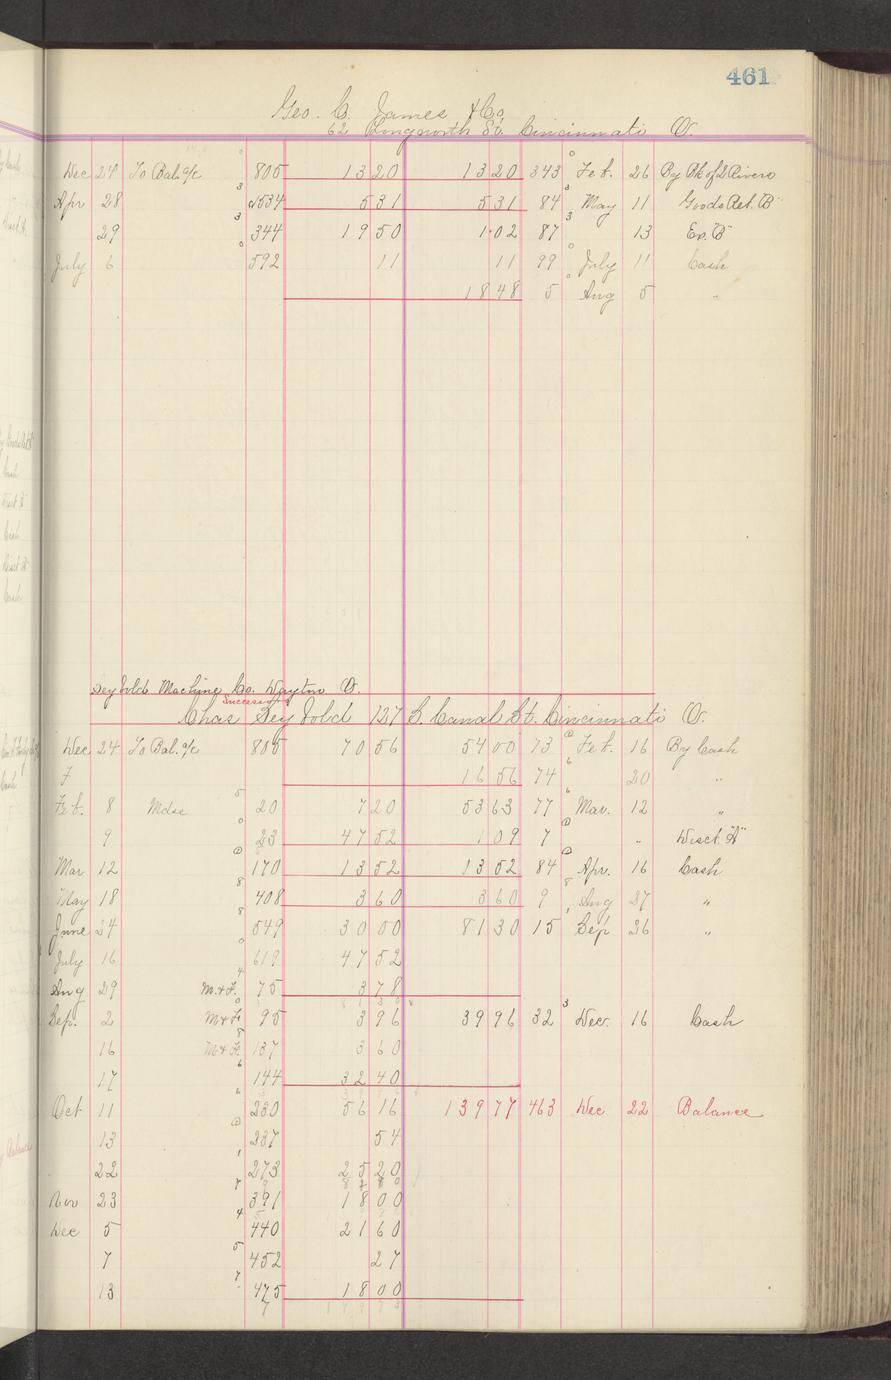 461
Geo. C. James & Co.
62 Longworth St. Cincinnati O.
Dec 24 To Bal. a/c 805 13 20 13 20 343 Feb. 26 By Bk of 2 Rivers
Apr 28 534 5 31 5 31 84 May 11 Goods Ret. B"
29 344 19 50 1 02 87 13 Ex. B"
July 6 592 11 11 99 July 11 Cash
18 48 5 Aug 5 "
Seybold Machine Co. Dayton O.
Successor
Chas Seybold 127 S. Canal St. Cincinnati O.
Dec 24 To Bal. a/c 805 70 56 54 00 73 Feb. 16 By Cash
16 56 74 20 "
Feb. 8 Mdse 20 7 20 53 63 77 Mar. 12 "
9 23 47 52 1 09 7 " Disct. "A"
Mar 12 170 13 52 13 52 84 Apr. 16 Cash
May 18 408 3 60 3 60 9 Aug 27 "
June 24 549 30 00 81 30 15 Sep 26 "
July 16 619 47 52
Aug 29 M. & F. 75 3 78
Sep. 2 M & F. 95 3 96 39 96 32 Dec. 16 Cash
16 M & F. 137 3 60
17 144 32 40
Oct 11 230 56 16 139 77 463 Dec 22 Balance
13 237 54
22 273 25 20
Nov 23 391 18 00
Dec 5 440 21 60
7 452 27
13 475 18 00